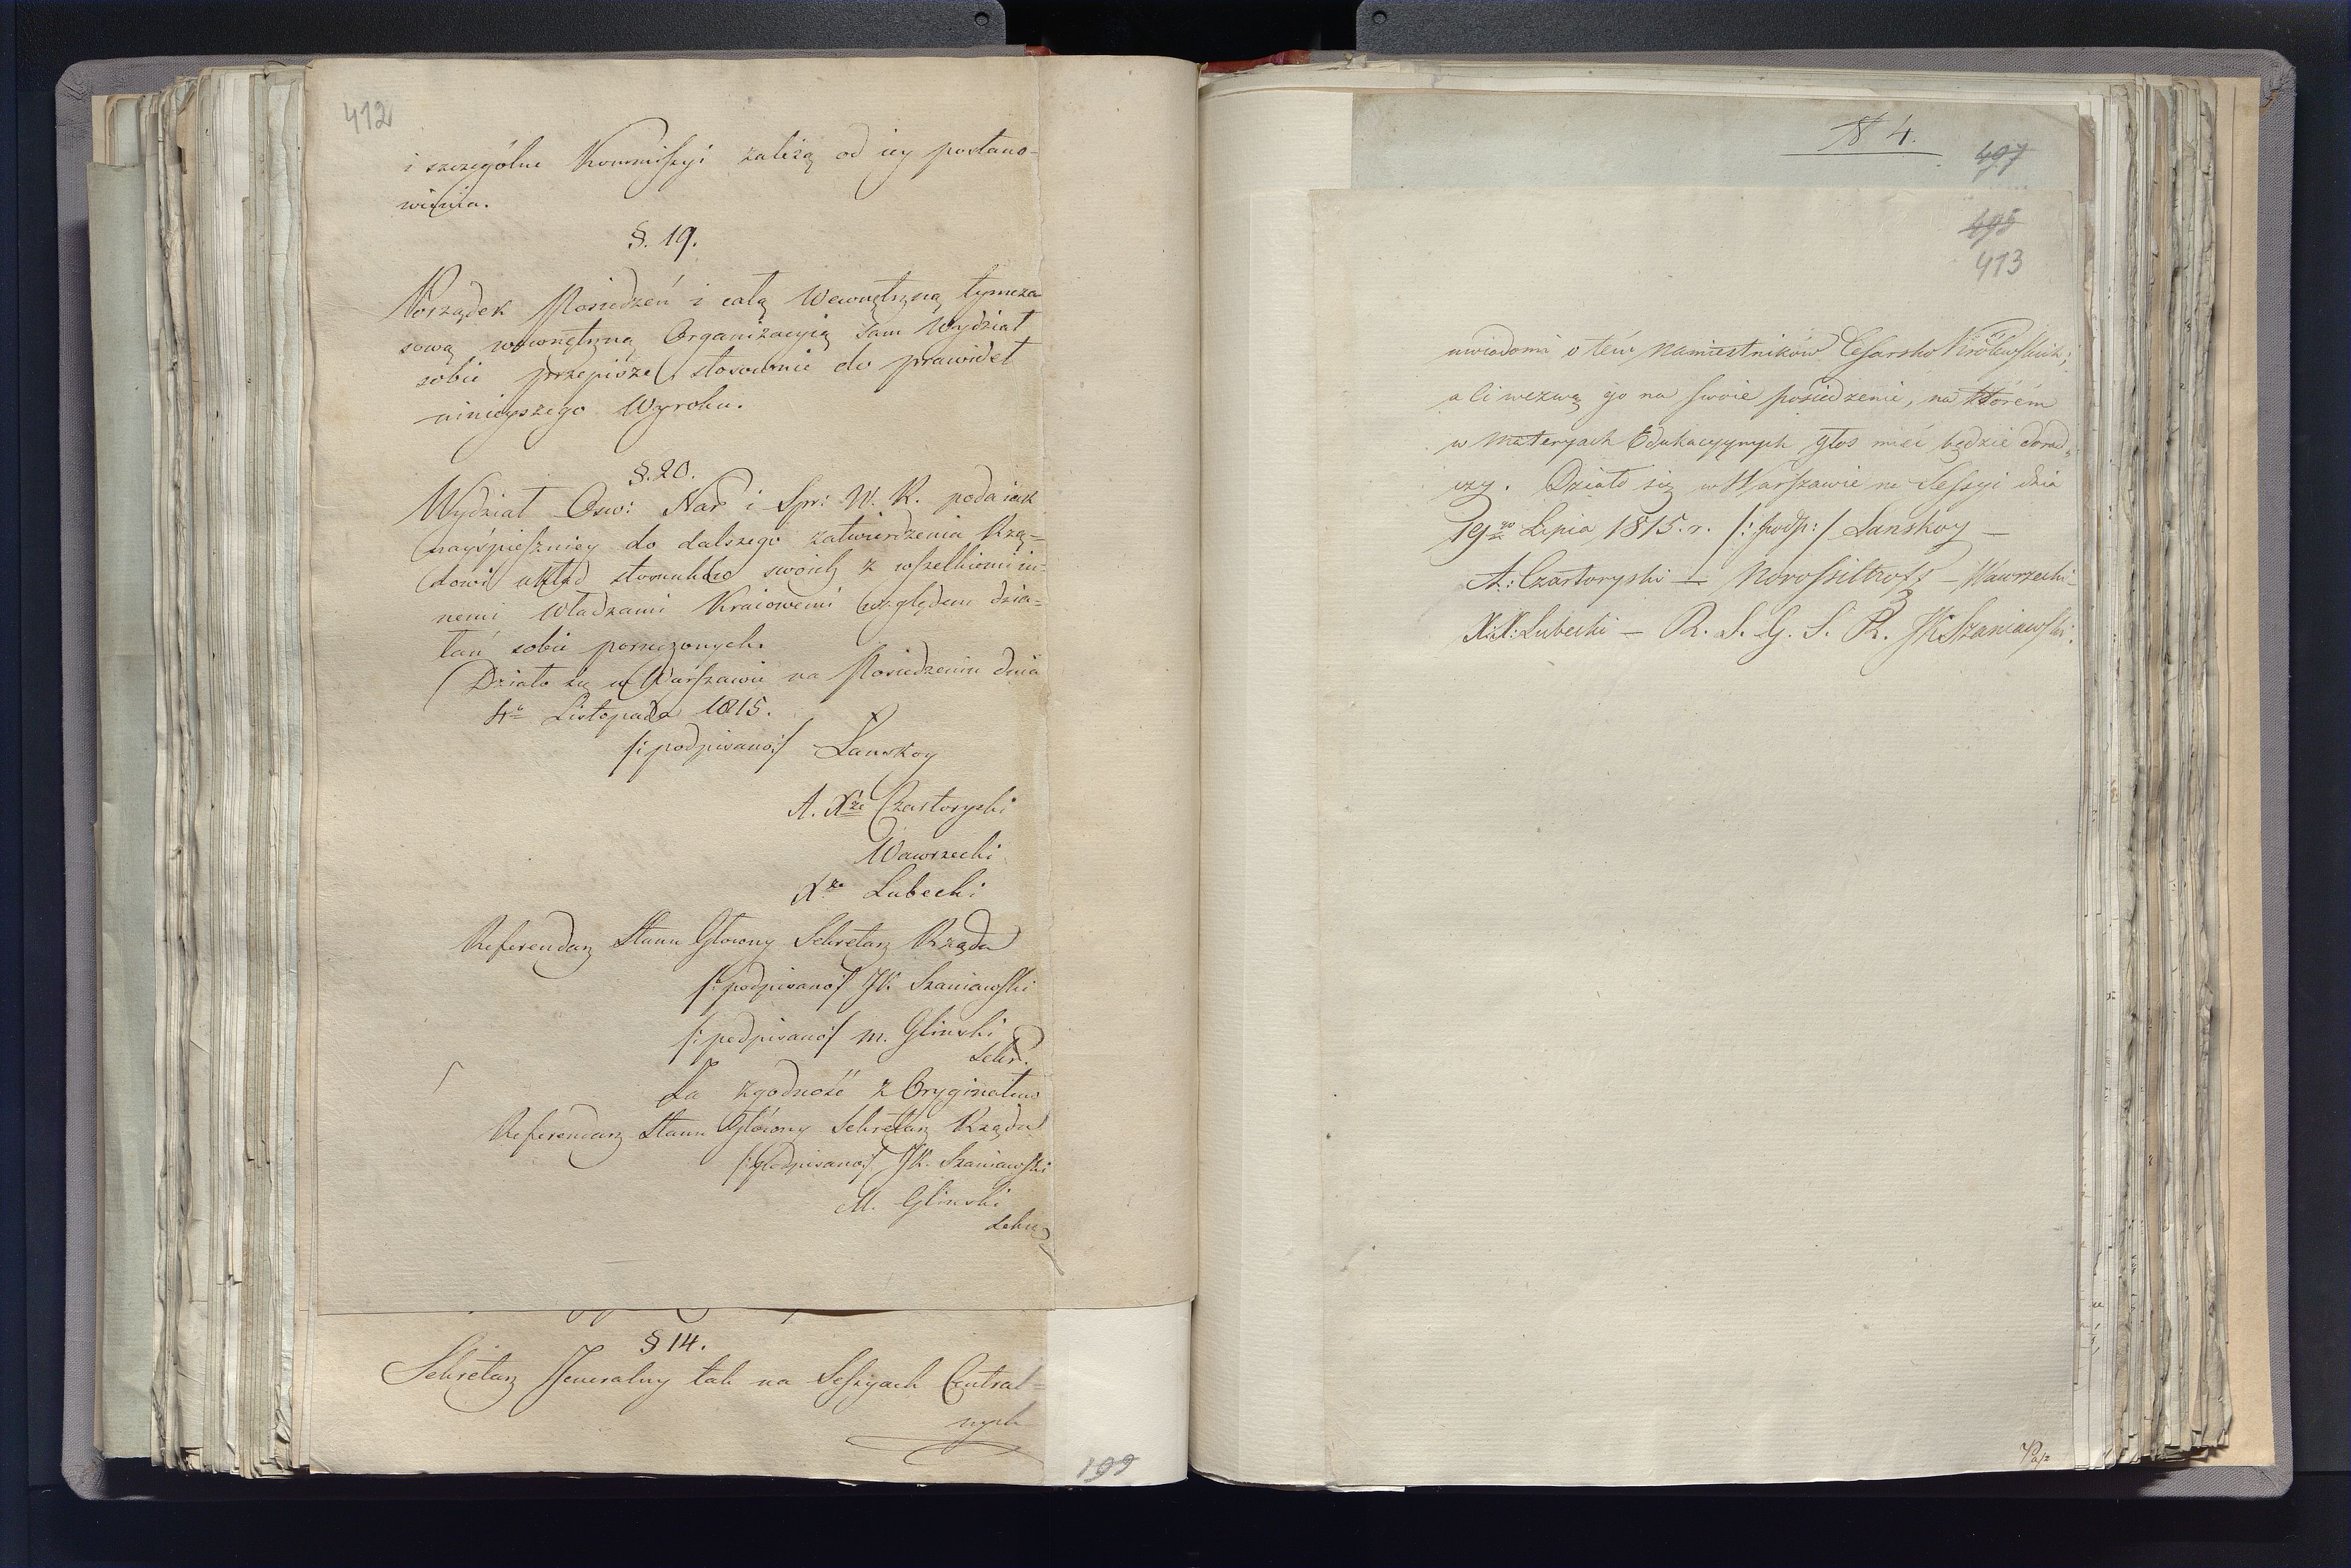 412
i szczególne Kommissyi zależą od iey postano-
wienia.
§. 19.
Porządek Posiedzeń i całą Wewnętrzną tymcza
sową wewnętrzną Organizacyią sam Wydział
sobie przepisze stosownie do prawideł
ninieyszego Wyroku.
§. 20.
Wydział Osw: Nar i Spr: W. R. poda iak
nayśpieszniey do dalszego zatwierdzenia Rzą=
dowi układ stosunków swoich z wszelkiemi in=
nemi Władzami Kraiowemi względem dzia=
łań sobie poruczonych.
Działo się w Warszawie na Posiedzeniu dnia
4º Listopada 1815.
/: podpisano:/ Łanskoy
A. Xże Czartoryski
Wawrzecki
Xże Lubecki
Referendarz Stanu Główny Sekretarz Rządu
/: podpisano:/ JK. Szaniawski
/: podpisano:/ M. Glinski
Sekr.
Za zgodność z Oryginałem
Referendarz Stanu Główny Sekretarz Rządu
/: podpisano:/ JK. Szaniawski
M. Glinski
Sekr.
§ 14.
Sekretarz Jeneralny tak na Sessyach Central=
nych
199
N 4.
497
495
413
uwiadomi o tém Namiestników Cesarsko Królewskich;
a Ci wezwą go na swoie posiedzenie, na którém
w materyach Edukacyynych głos mieć będzie dorad„
czy. Działo się w Warszawie na Sessyi dnia
19go Lipia 1815. r. /: podp: / Lanskoy —
A: Czartoryski — Novossiltzoff — Wawrzecki —
X: Lubecki — R. S. G. S. R. JKSzaniawski.